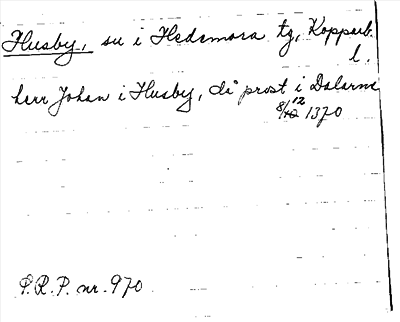 Husby, su i Hedemora tg, Kopparb.
l.
herr Johan i Husby, då prost i Dalarne
8/12 1370
P.R.P. nr. 970